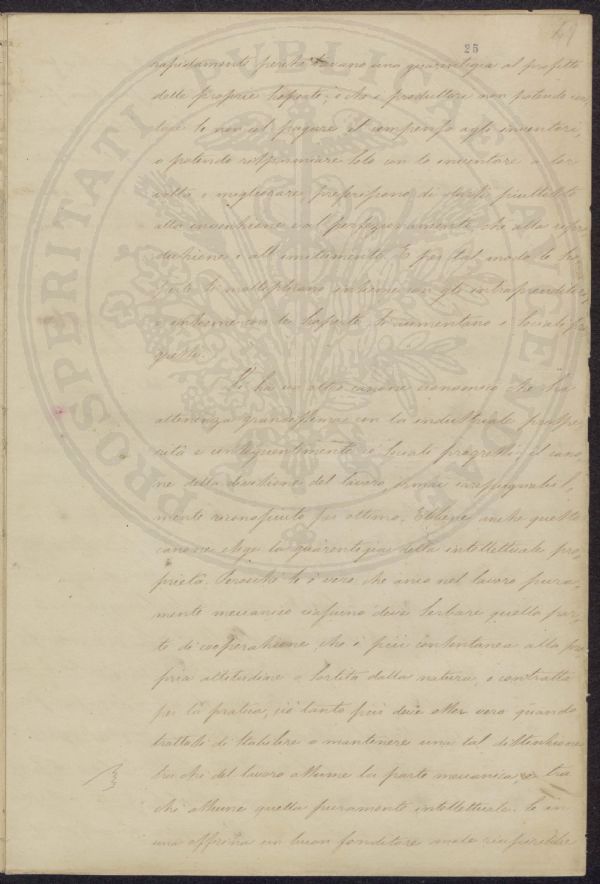 25
rapidamente perchè trovano una guarentigia al profitto
delle proprie scoperte; e che i produttori non potendo
se non col pagare il compenso agli inventori,
o potendo risparmiarselo con lo inventare a lor
volta o migliorare, preferiscano di darsi piuttosto
alla invenzione e al perfezionamento, che alla ripro
duzione e all'imitamento. E per tal modo le sco
perte si moltiplicano insieme con gli intraprenditori,
e insieme con le scoperte, si aumentano i sociali pro
gressi.
Vi ha un altro canone economico che ha
attenenza grandissima con la industriale prospe
rità e conseguentemente co' sociali progressi: il cano
ne della divisione del lavoro, ormai irrepugnabil
mente riconosciuto per ottimo. Ebbene anche questo
canone esige la guarentigia della intellettuale pro
prietà. Perocchè se è vero che anco nel lavoro pura
mente meccanico ciascuno deve serbare quella par
te di cooperazione, che è più consentanea alla pro
pria attitudine o sortita dalla natura, o contratta
per la pratica, ciò tanto più deve esser vero quando
trattasi di stabilire o mantenere una tal distinzione
tra chi del lavoro assume la parte meccanica, e tra
chi assume quella puramente intellettuale. Se in
una officina un buon fonditore male
PROSPERITATI PUBLICAE AUGENDAE